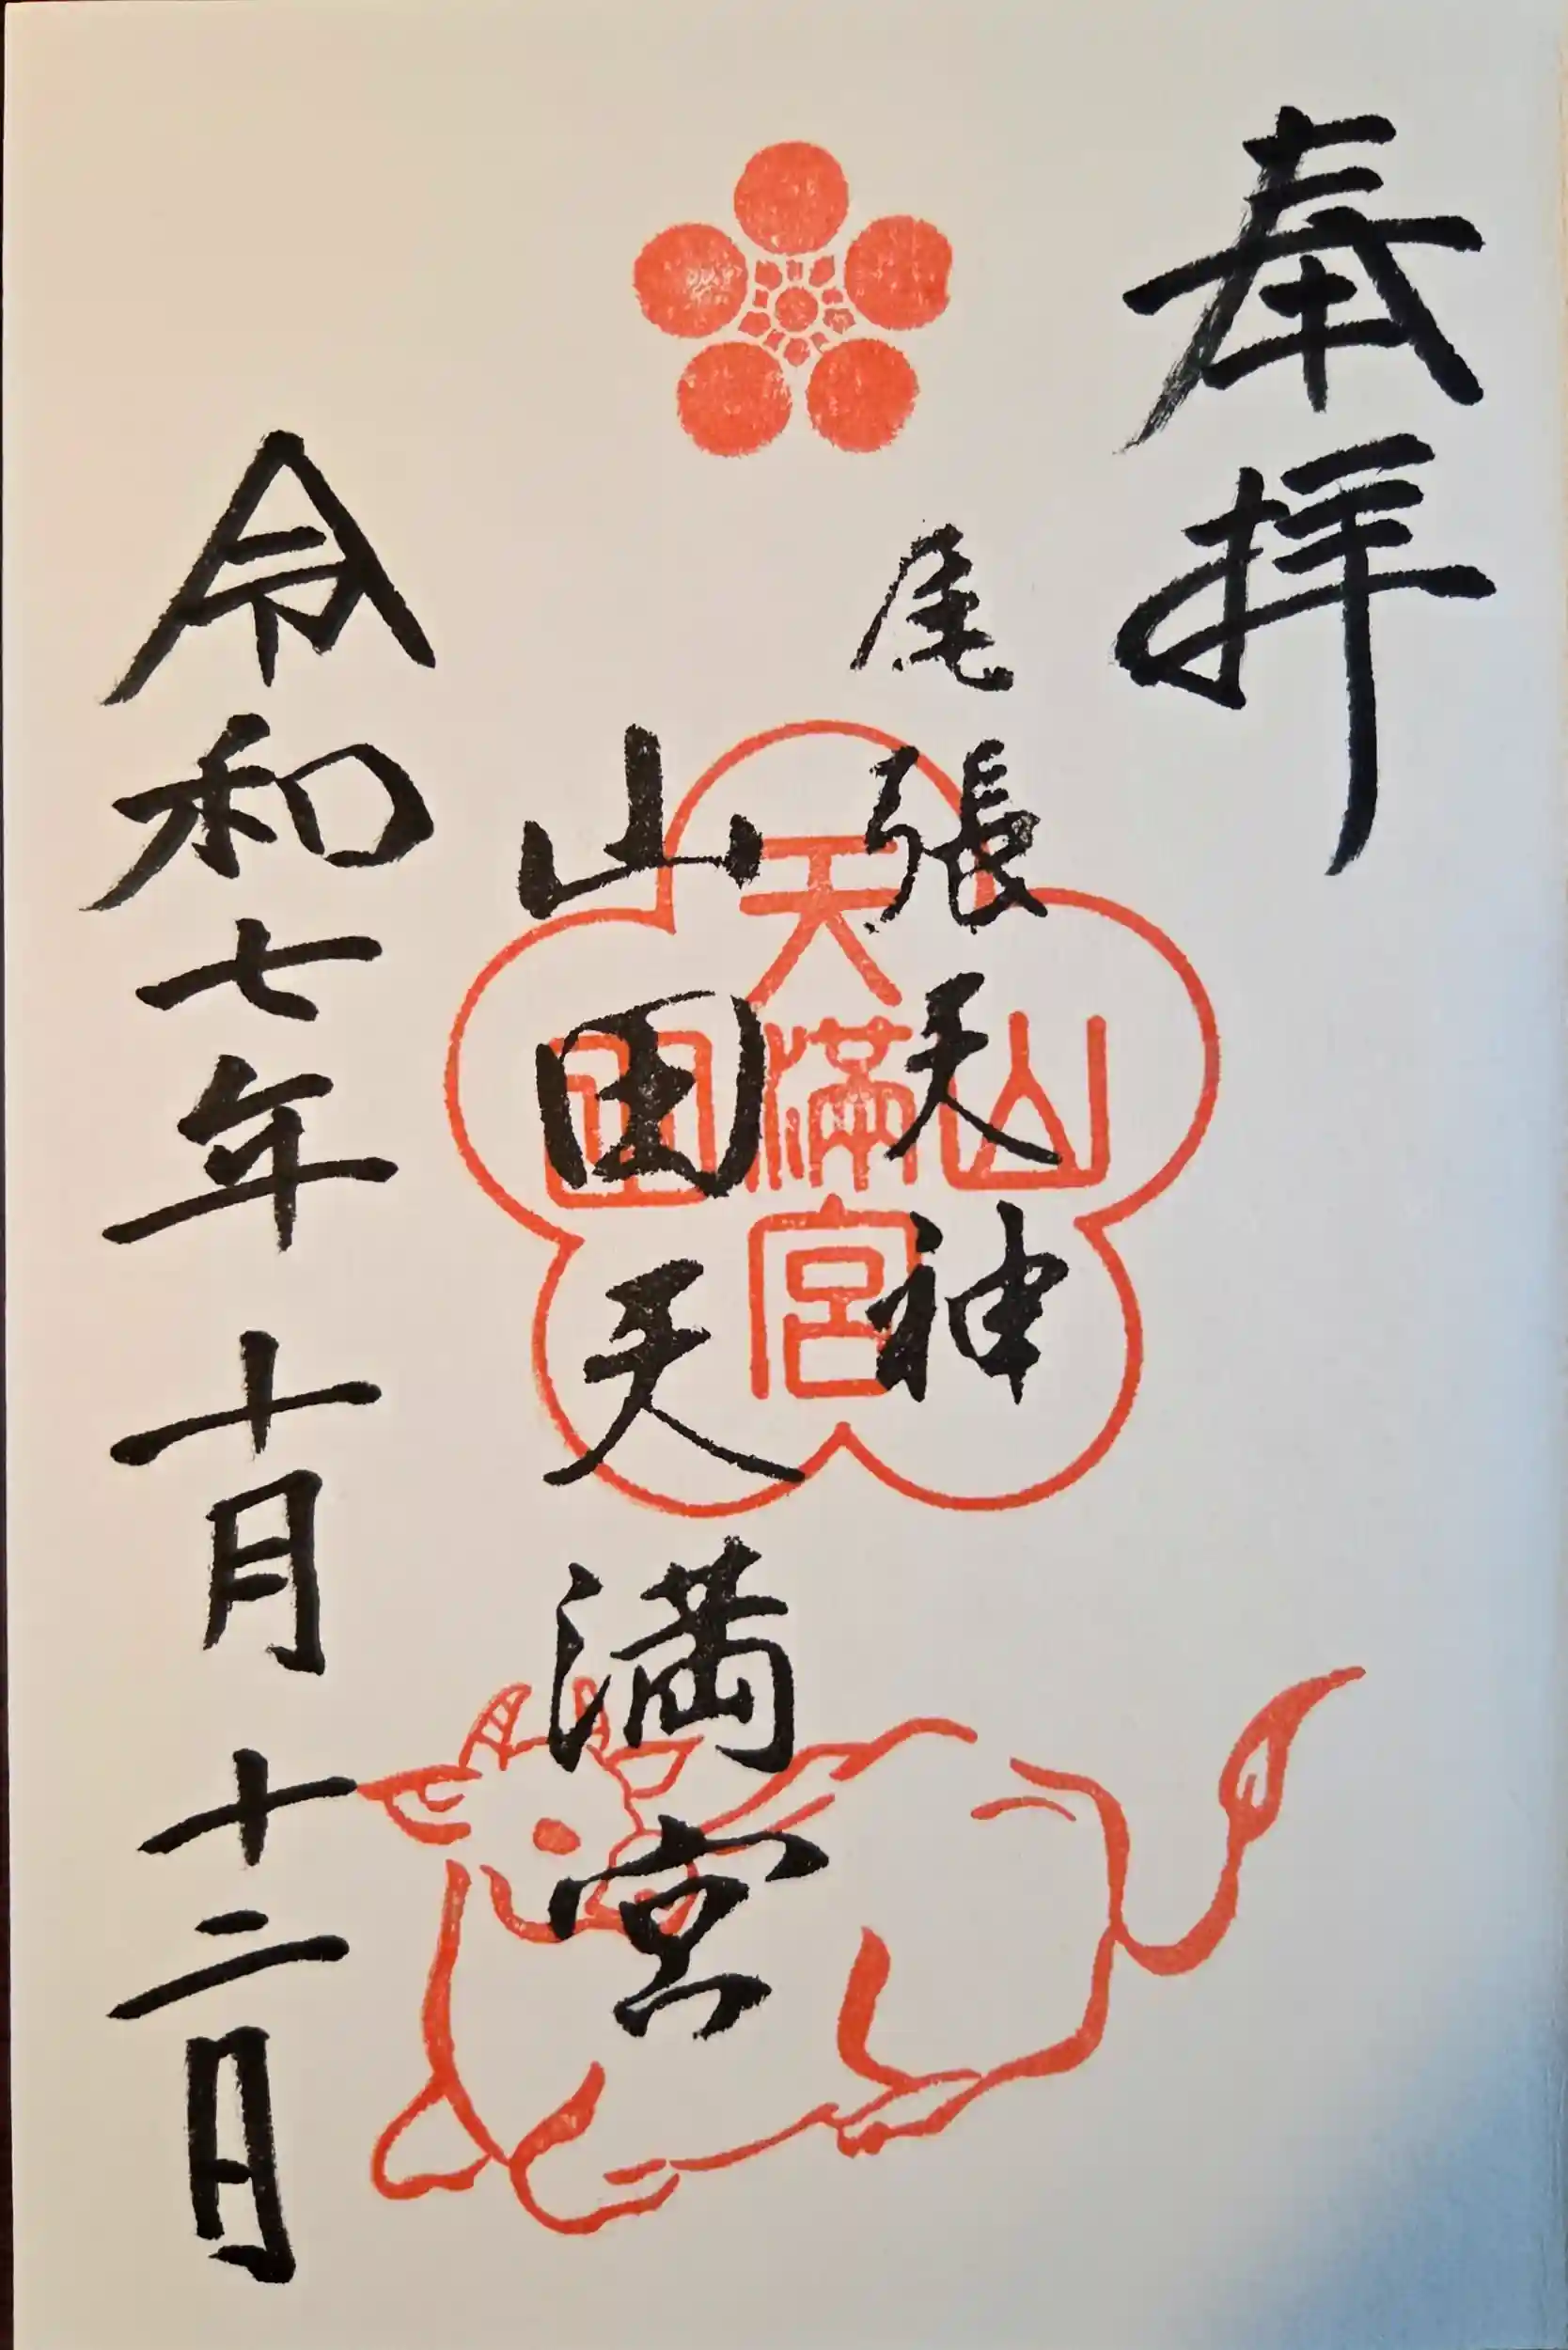 奉拝
尾張天神
山田天満宮
天
山満田
宮
令和七年十月十二日